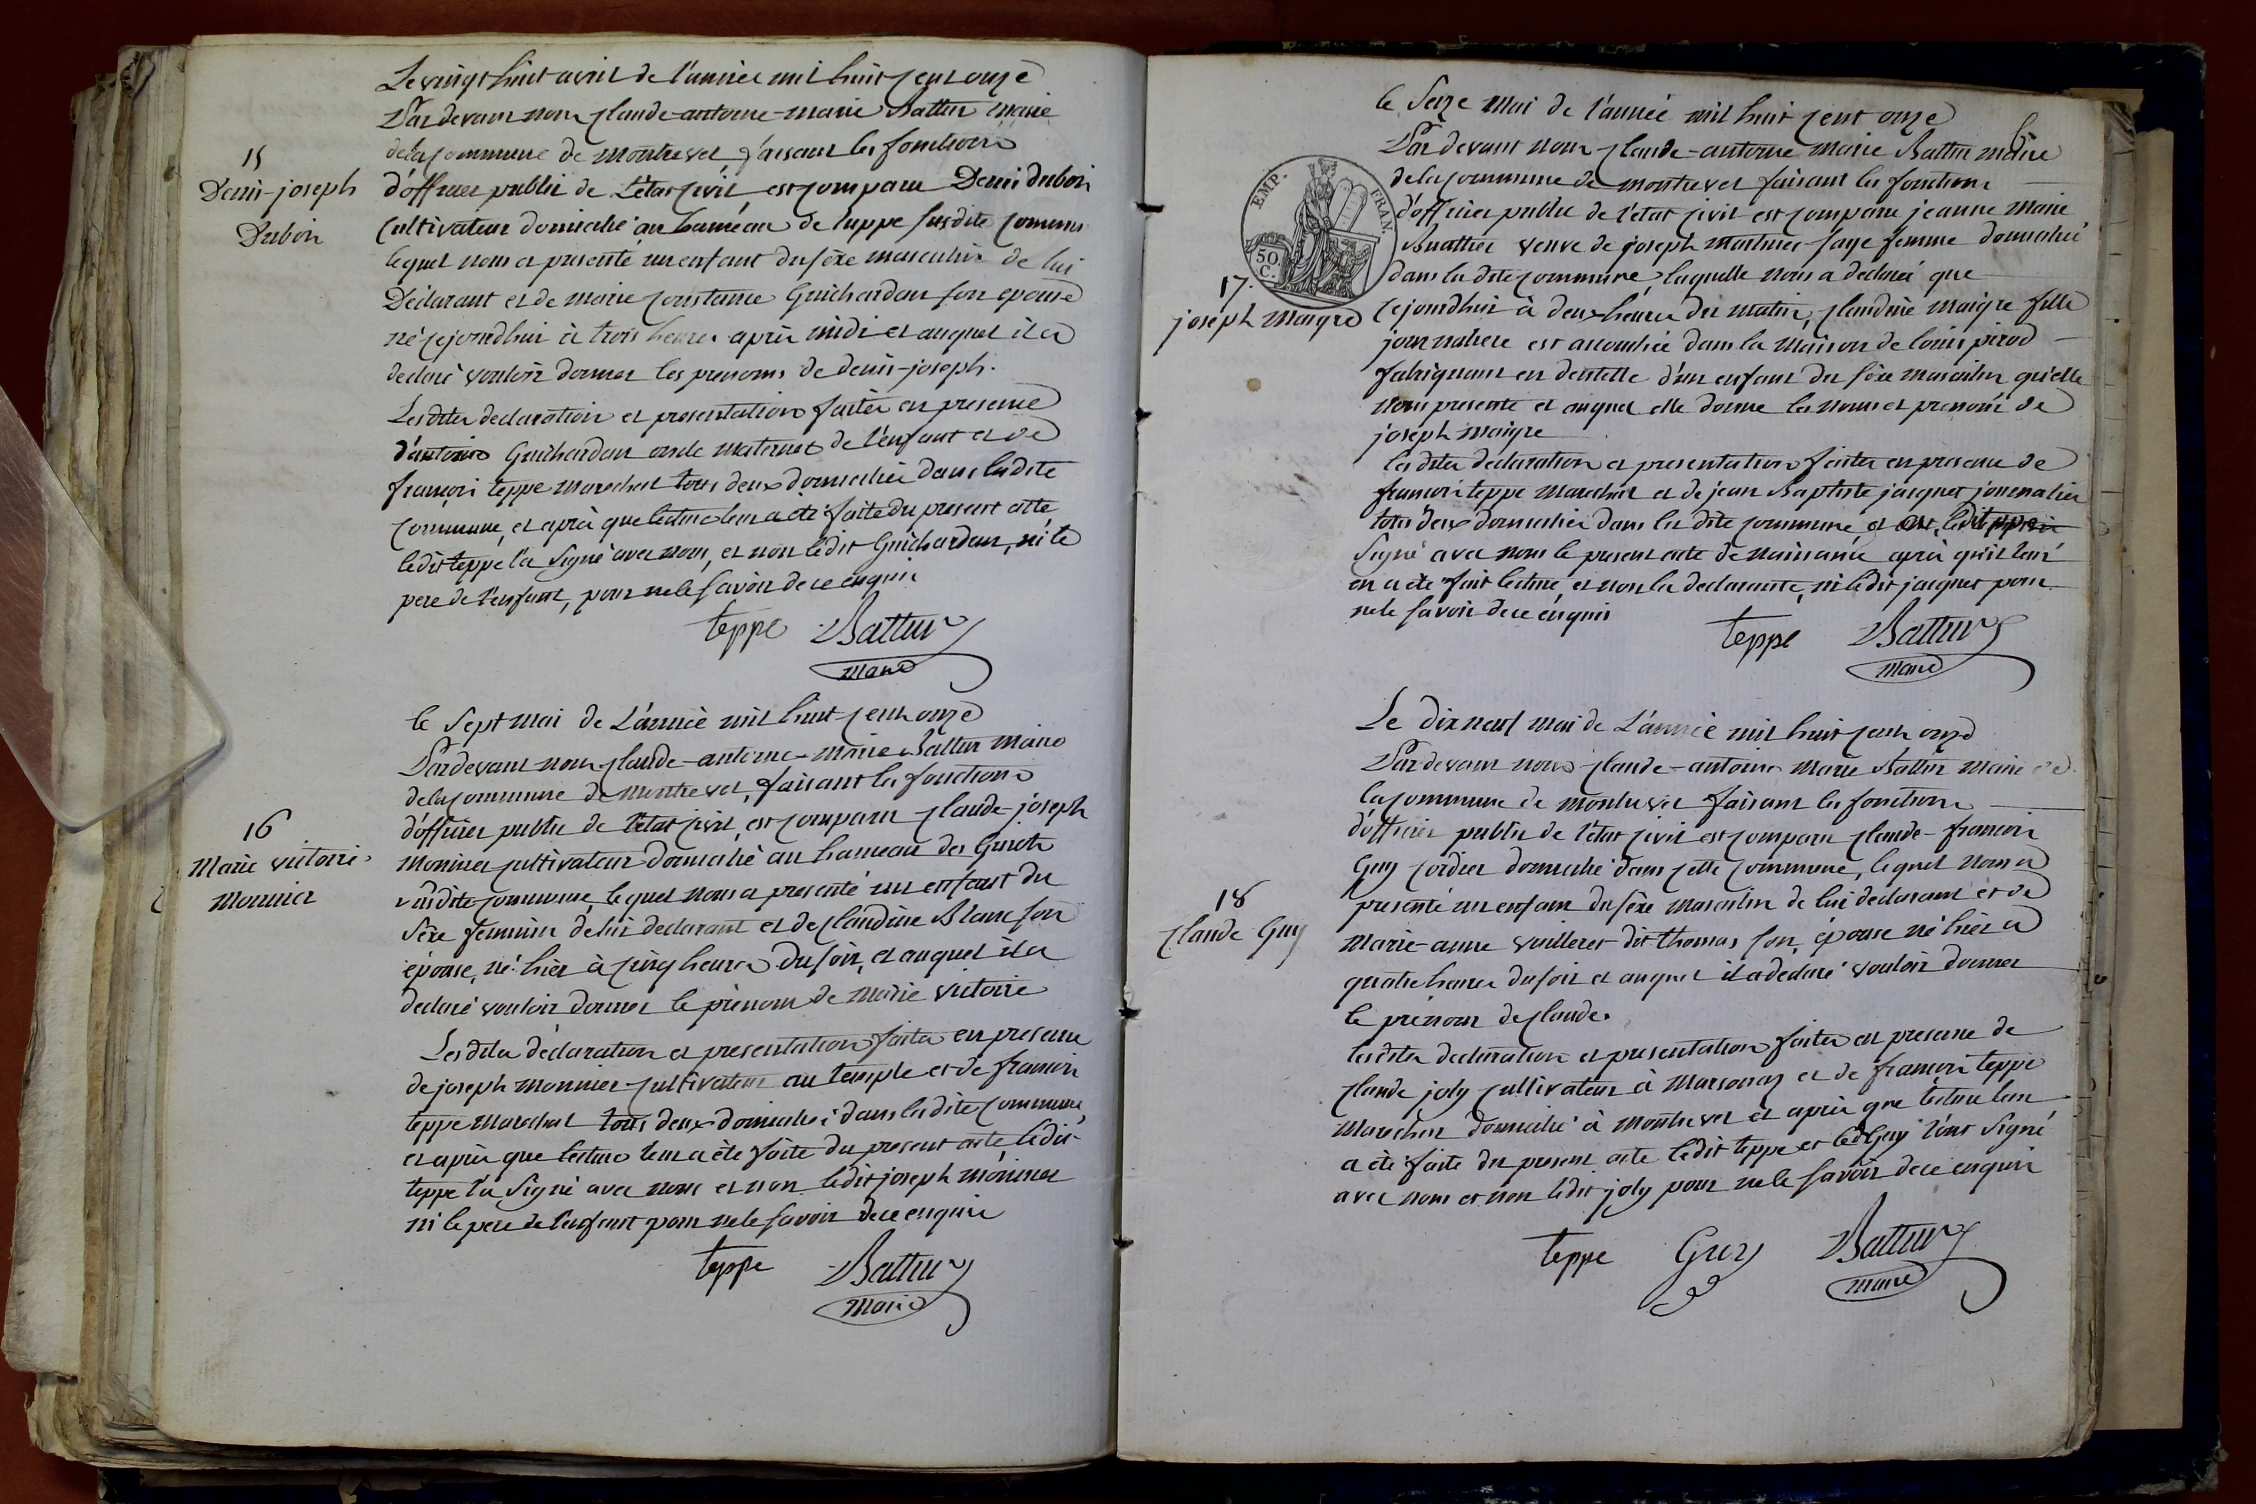 Le vingt huit avril de l'année mil huit cent onze
Pardevant nous claude-antoine-marie Battur maire
de la commune de montrevel faisant les fonctions
15
Denis-joseph
Dubois
d'officier public de l'état civil est comparu Denis dubois
Cultivateur domicilié au hameau de luppe susdite commune
lequel nous a presenté un enfant du sèxe masculin de lui
Déclarant et de marie constance Guichardan son epouse
né cejourdhui à trois heures après midi et auquel il a
declaré vouloir donner les prenoms de denis-joseph.
Lesdites declaration et presentation faites en presence
d'antoine Guichardan oncle maternel de l'enfant et de
françois teppe marechal tous deux domiciliés dans ladite
commune, et après que lecture leur a été faite du present acte
ledit teppe l'a signé avec nous, et non ledit Guichardan, ni le
pere de l'enfant, pour ne le savoir de ce enquis
teppe Battur
maire
le sept mai de L'année mil huit cent onze
Pardevant nous claude-antoine-marie Battur maire
de la commune de montrevel, faisant les fonctions
16
Marie victoire
Monnier
d'officier public de l'état civil, est comparu claude-joseph
monnier cultivateur domicilié au hameau des Guiots
susdite commune, lequel nous a presenté un enfant du
sèxe feminin de lui declarant et de claudine Blanc son
épouse, né hier à cinq heures du soir, et auquel il a
declaré vouloir donner le prénom de Marie victoire
Lesdites déclaration et presentation faites en presence
de joseph monnier cultivateur au temple et de françois
teppe marechal tous deux domiciliés dans ladite commune,
et après que lecture leur a été faite du present acte ledit
teppe l'a signé avec nous et non ledit joseph monnier
ni le pere de l'enfant pour ne le savoir de ce enquis
teppe Battur
Maire
le Seize Mai de l'année mil huit cent onze
Pardevant nous claude-antoine marie Battur maire
de la commune de montrevel faisant les fonctions
EMP. FRAN.
50.
C.
17.
joseph maigre
d'officier public de l'état civil est comparu jeanne marie
Buathier veuve de joseph mortier sage femme domiciliée
dans la dite commune, laquelle nous a declaré que
cejourdhui à deux heures du matin, claudine maigre fille
journaliere est accouchée dans la maison de louis pirod
fabriquant en dentelle d'un enfant du sèxe masculin qu'elle
nous presente et auquel elle donne les noms et prenoms de
joseph maigre
lesdites declaration et presentation faites en presence de
françois teppe marechal et de jean Baptiste jacquet journalier
tous deux domiciliés dans la dite commune et ont, ledit teppe
signé avec nous le present acte de naissance après qu'il leur
en a été fait lecture, et non la declarante, ni ledit jacquet pour
ne le savoir de ce enquis
teppe Battur
maire
Le dix neuf mai de L'année mil huit cent onze
Pardevant nous claude-antoine Marie Battur Maire de
la commune de montrevel faisant les fonctions
d'officier public de l'état civil est comparu claude-françois
Guy cordier domicilié dans cette commune, lequel nous a
18
claude Guy
presenté un enfant du sèxe masculin de lui declarant et de
Marie-anne vuilleret dit thomas son épouse né hier a
quatre heures du soir et auquel il a declaré vouloir donner
le prénom de claude.
lesdites declaration et presentation faites en presence de
claude joly cultivateur à marsonnas et de françois teppe
marechal domicilié à montrevel et après que lecture leur
a été faite du present acte ledit teppe et led Guy l'ont signé
avec nous et non ledit joly pour ne le savoir de ce enquis
teppe Guy Battur
maire